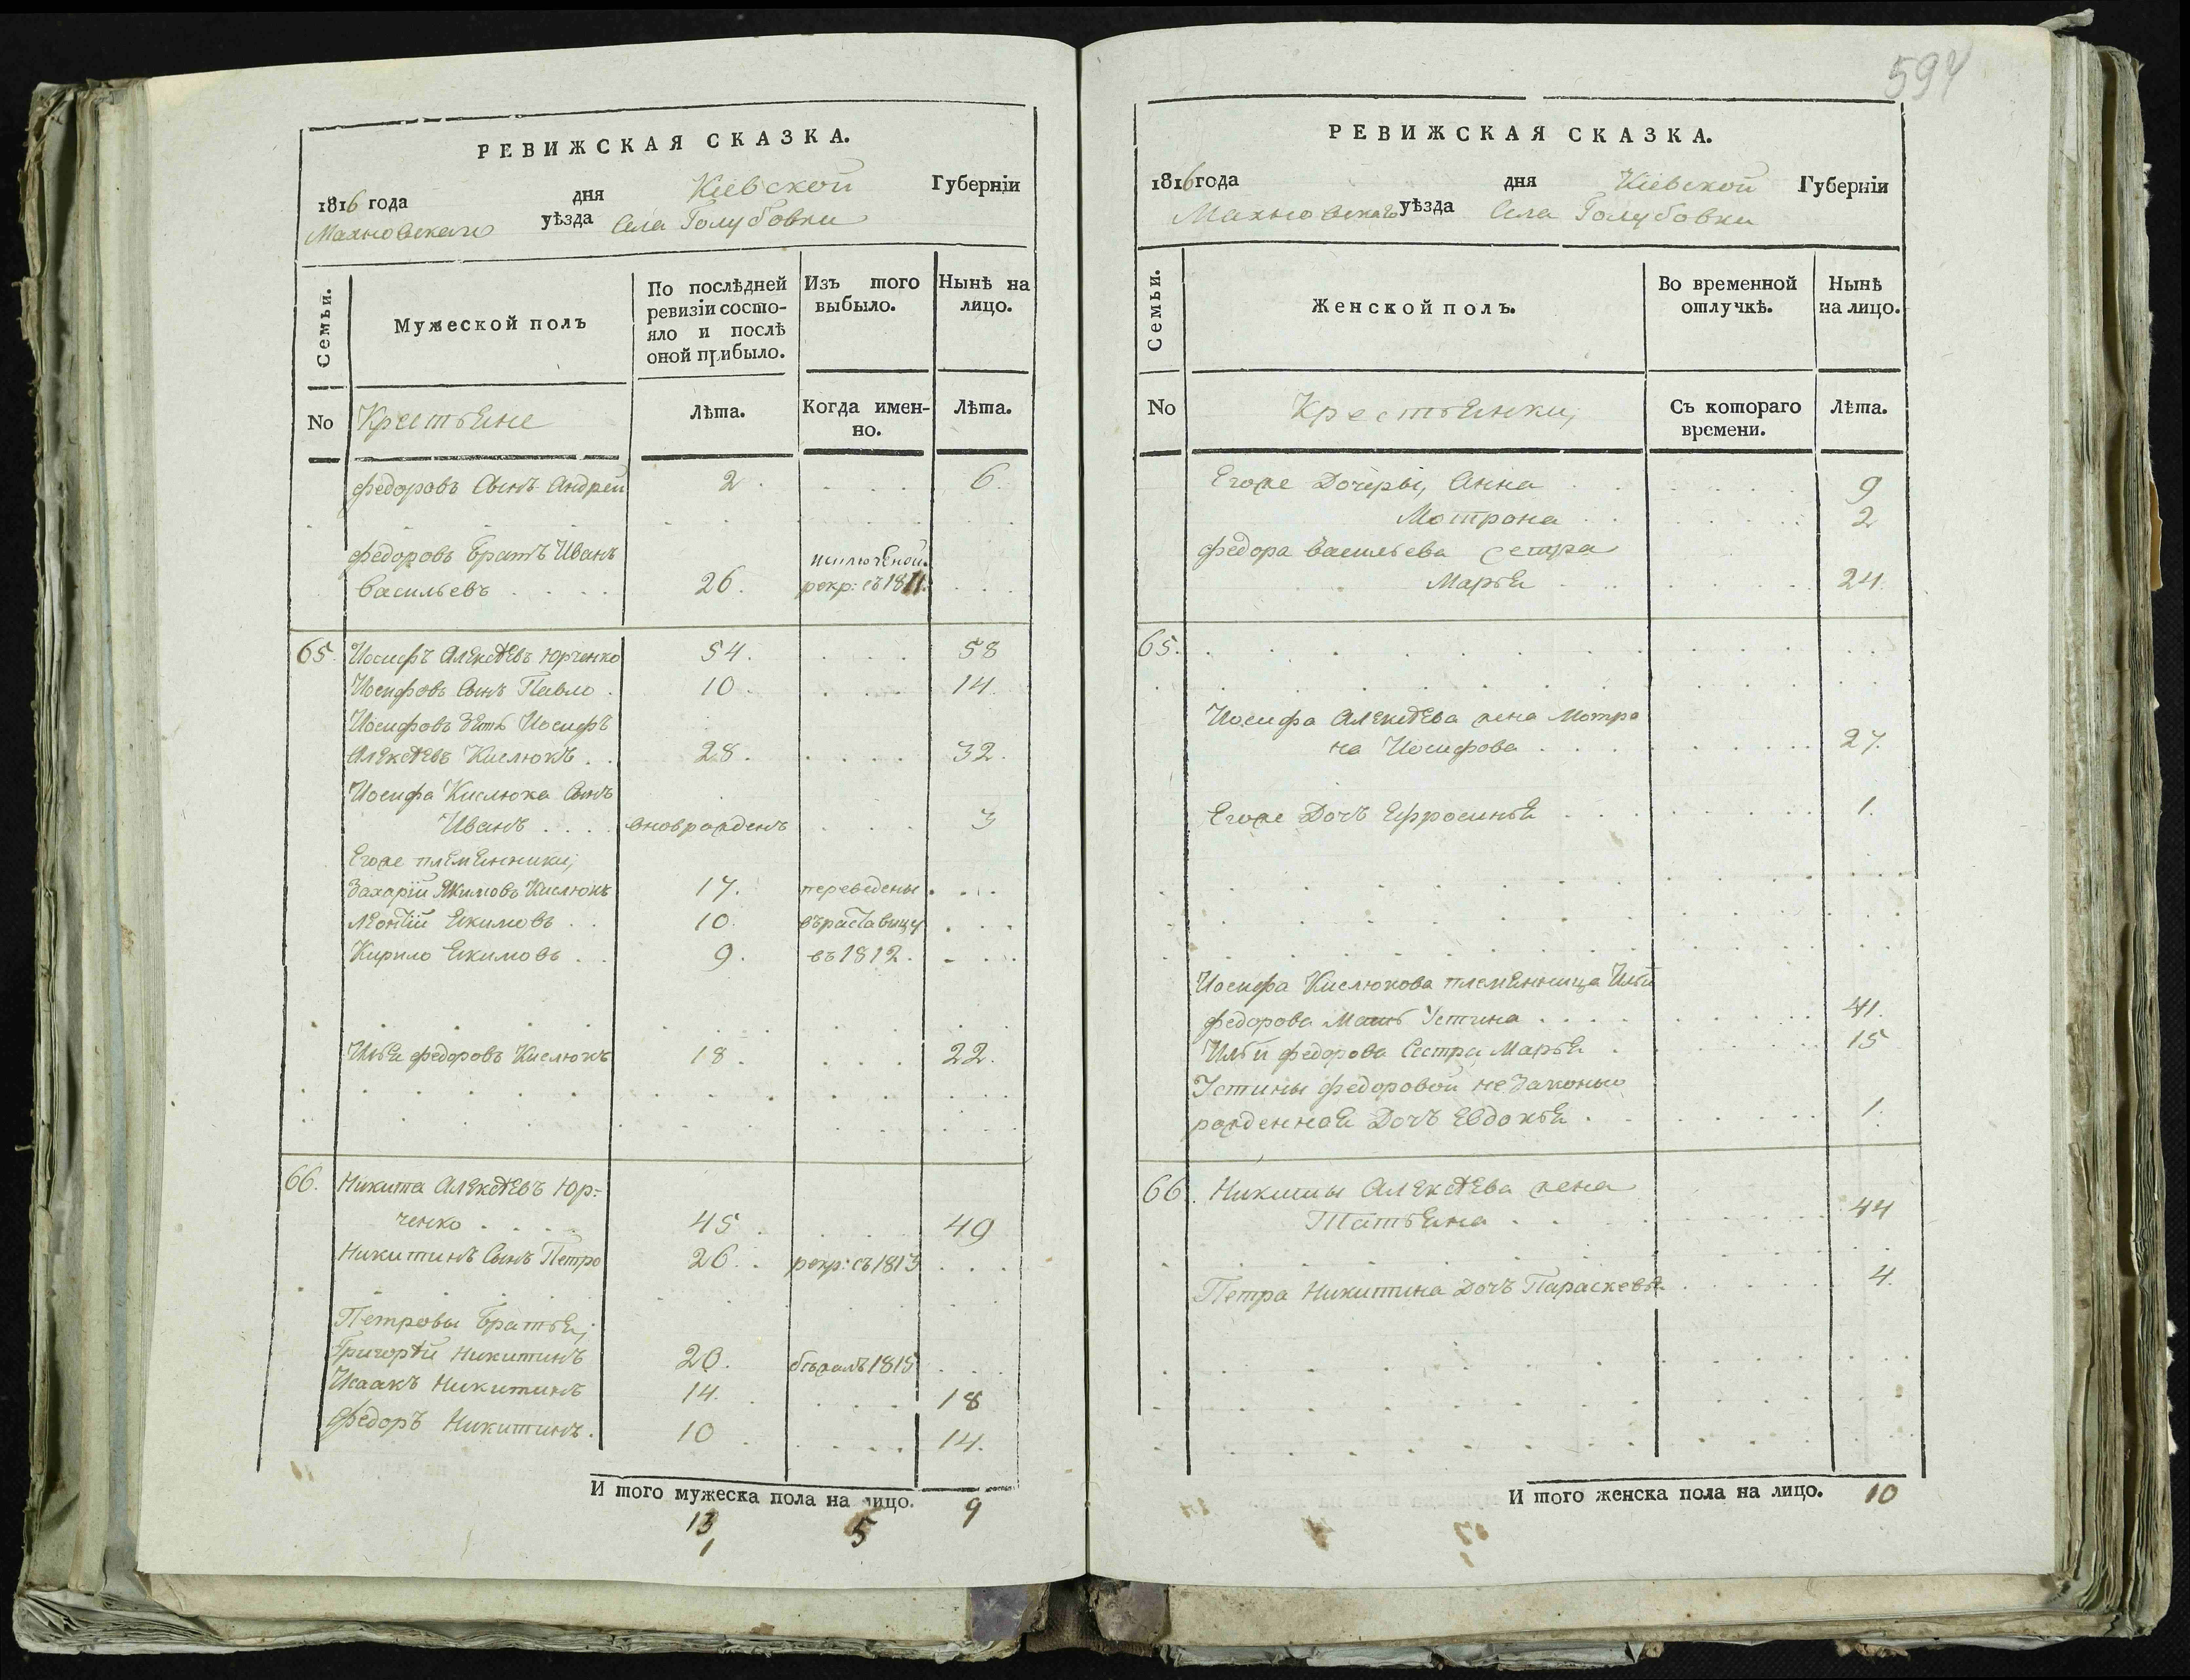 594
РЕВИЖСКАЯ СКАЗКА.
1816 года дня Кіевской Губерніи
Махновскаго уѣзда Села Голубовки
Семьи.
Мужеской полъ
По послѣдней
ревизіи состо-
яло и послѣ
оной прибыло.
Изъ того
выбыло.
Нынѣ на
лицо.
No Крестьяне Лѣта. Когда имен-
но.
Лѣта.
Федоровъ Сынъ Андрей 2. 6.
Федоровъ Братъ Иванъ
Васильевъ 26. рекр: съ 1811.
65. Иосифъ Алексѣевъ Юрченко 54. 58
Иосифовъ Сынъ Павло 10. 14.
Иосифовъ Зять Иосифъ
Алексѣевъ Кислюкъ 28. 32.
Иосифа Кислюка Сынъ
Иванъ вноврожденъ 3
Егоже племянники;
Захарій Якимовъ Кислюкъ 17. переведены
Леонтій Якимовъ 10. въ раставицу
Кирило Якимовъ 9. въ 1812.
Илья Федоровъ Кислюкъ 18. 22.
66. Никита Алексѣевъ Юр-
ченко 45. 49
Никитинъ Сынъ Петро 26. рекр: съ 1813
Петровы Братья;
Григорѣй Никитинъ 20. бѣжалъ 1815
Исаакъ Никитинъ 14. 18
Федоръ Никитинъ. 10 14.
И того мужеска пола на лицо. 9
13 5
1
РЕВИЖСКАЯ СКАЗКА.
1816 года дня Кіевской Губерніи
Махновскаго уѣзда Села Голубовки
Семьи.
Женской полъ.
Во временной
отлучкѣ.
Нынѣ
на лицо.
No Крестьянки; Съ котораго
времени.
Лѣта.
Егоже Дочеры, Анна 9
Мотрона 2
Федора Васильева Сестра
Марья 24.
65.
Иосифа Алексѣева жена Мотро
на Иосифова 27.
Егоже Дочъ Ефросинья 1.
Иосифа Кислюкова племянница Ильи
Федорова Мать Устина 41.
Ильи Федорова Сестра Марья 15
Устины Федоровой не Законно
рожденная Дочъ Евдокья 1.
66. Никиты Алексѣева жена
Татьяна 44
Петра Никитина Дочъ Параскевья 4.
И того женска пола на лицо. 10